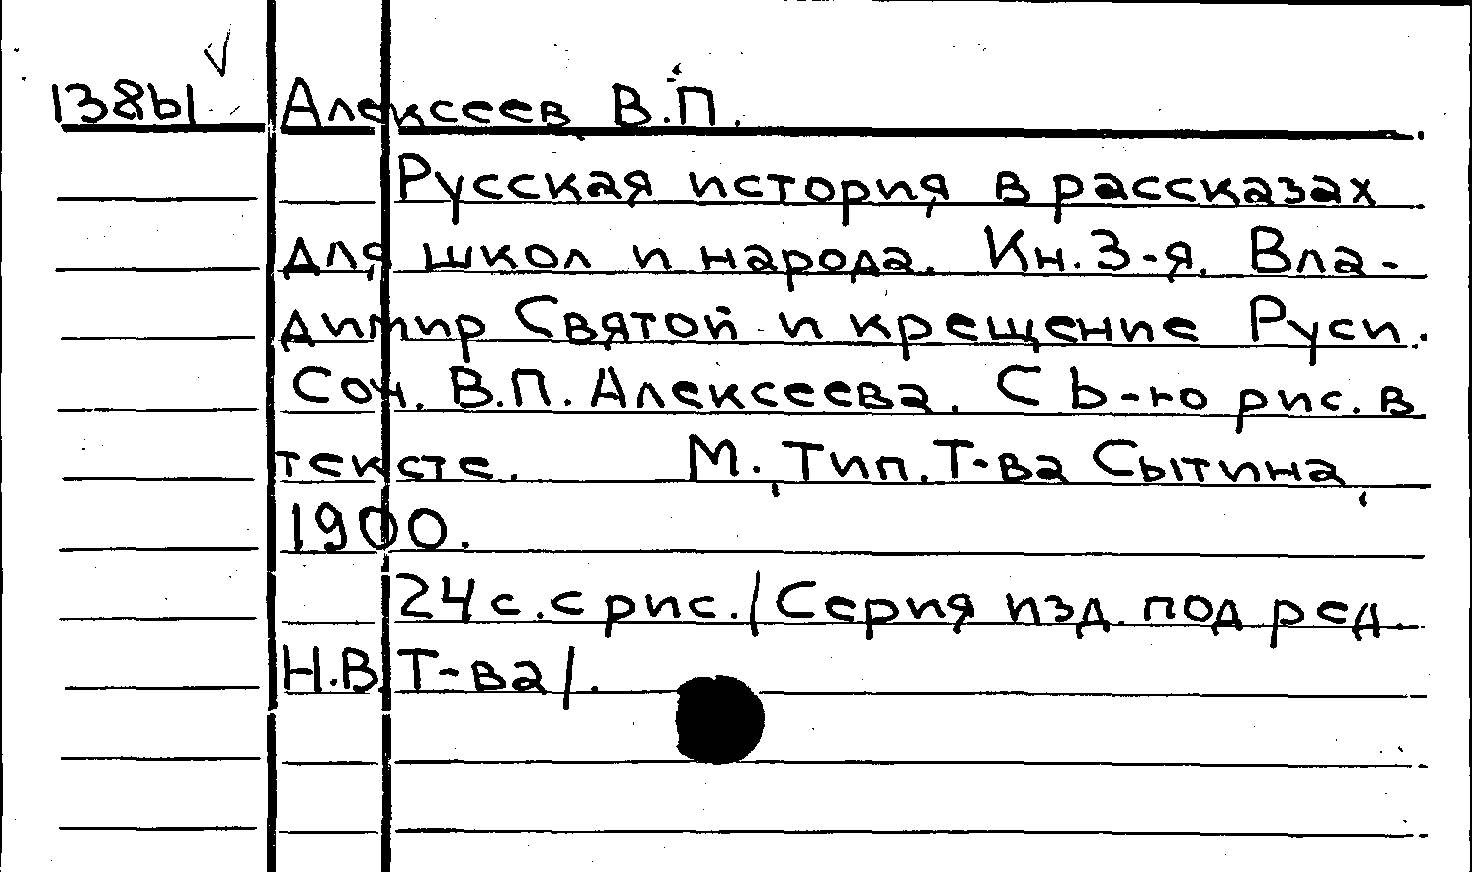 13861 Алексеев В.П.
Русская история в рассказах
для школ и народа. Кн. 3-я. Вла-
димир Святой и крещение Руси.
Соч. В.П. Алексеева. С 6-ю рис. в
тексте. М., Тип. Т-ва Сытина,
1900.
24 с. с рис. /Серия изд. под ред.
Н.В. Т-ва/.